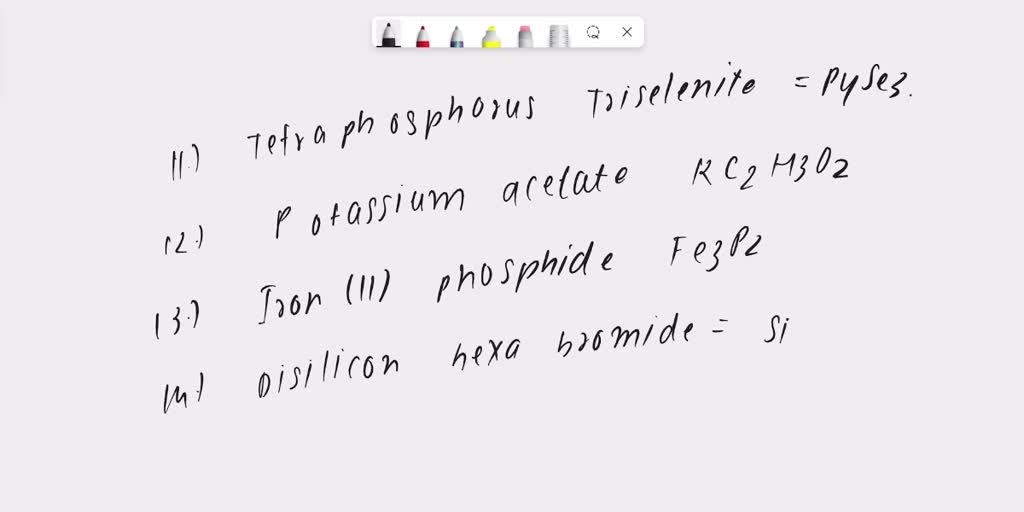 11.) Tetraphosphorus Triselenite = P4Se3.
12.) Potassium acetate KC2H3O2
13.) Iron (11) phosphide Fe3P2
14.) Disilicon hexa bromide = Si